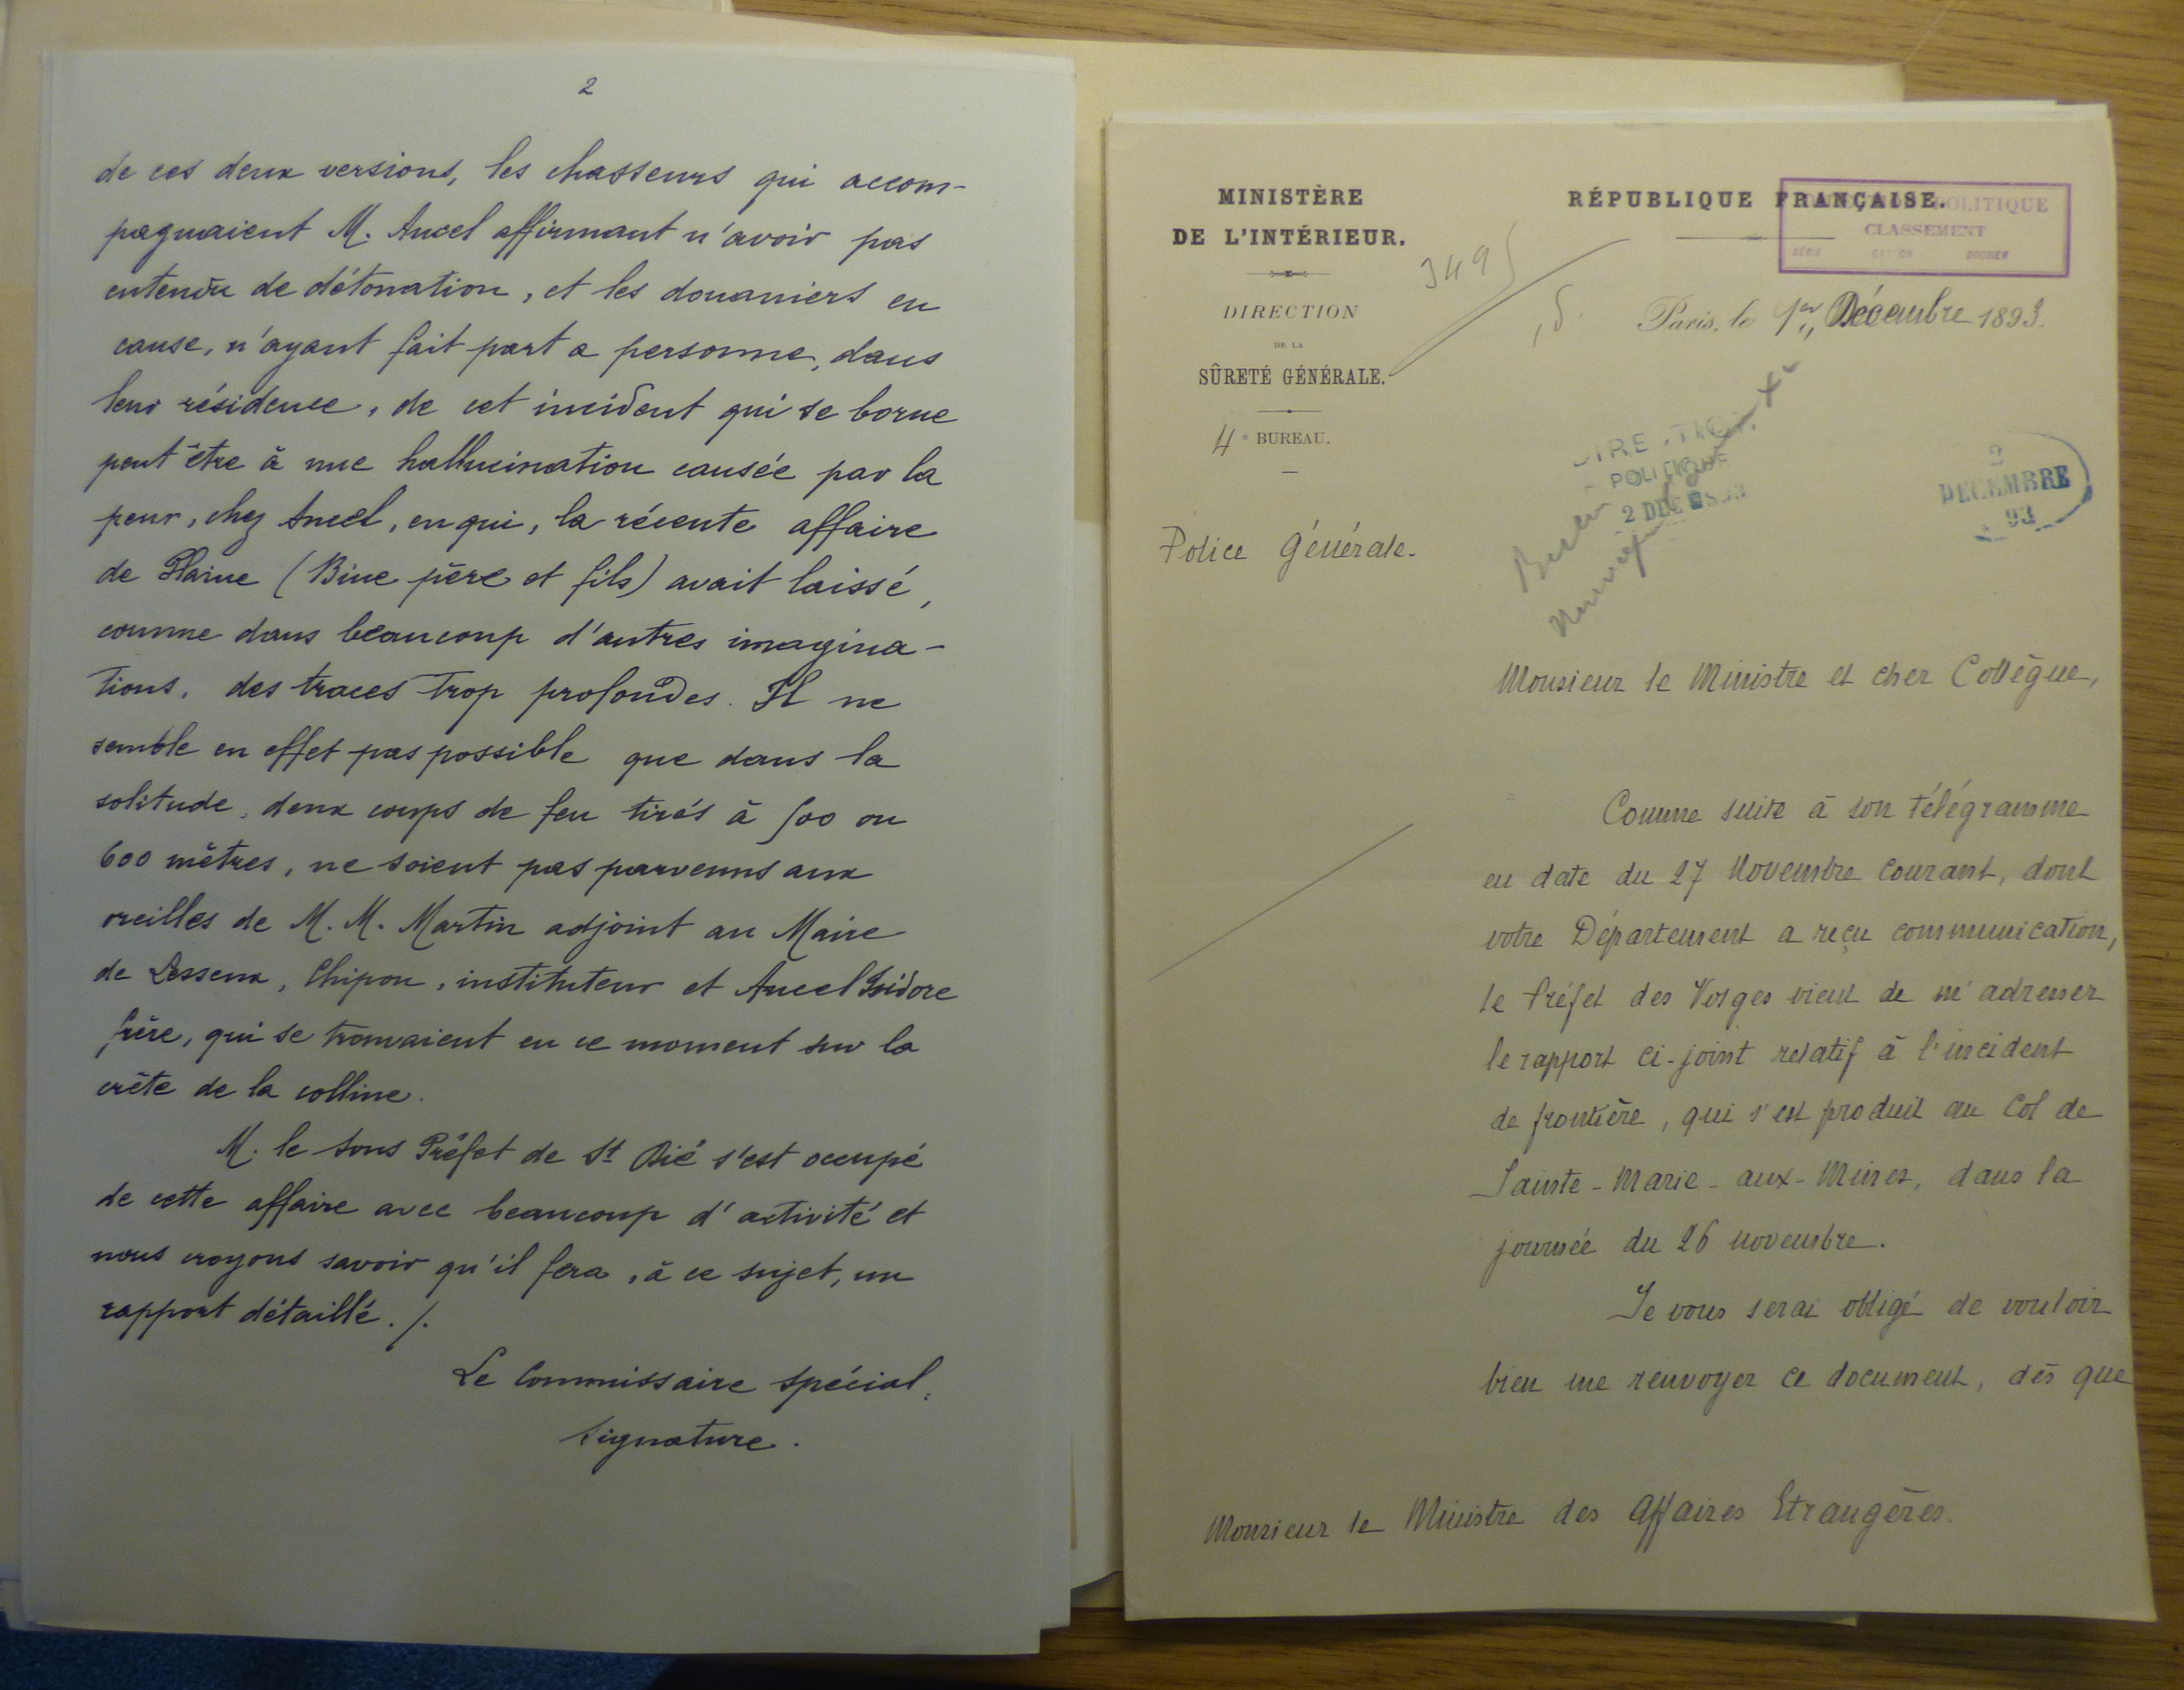 2
de ces deux versions, les chasseurs qui accom-
pagnaient M. Ancel affirmant n'avoir pas
entendu de détonation, et les douaniers en
cause, n'ayant fait part a personne, dans
leur résidence, de cet incident qui se borne
peut être à une hallucination causée par la
peur, chez Ancel, en qui, la récente affaire
de Plaine (Bine père et fils) avait laissé,
comme dans beaucoup d'autres imagina-
tions, des traces trop profondes. Il ne
semble en effet pas possible que dans la
solitude, deux coups de feu tirés à 500 ou
600 mètres, ne soient pas parvenus aux
oreilles de M. M. Martin adjoint au Maire
de Lesseux, Chipon, instituteur et Ancel Isidore
frère, qui se trouvaient en ce moment sur la
crête de la colline.
M. le Sous Préfet de St Dié s'est occupé
de cette affaire avec beaucoup d'activité et
nous croyons savoir qu'il fera, à ce sujet, un
rapport détaillé ./.
Le Commissaire Spécial,
Signature.
MINISTÈRE
DE L'INTÉRIEUR.
DIRECTION
DE LA
SÛRETÉ GÉNÉRALE.
4e BUREAU.
Police Générale.
RÉPUBLIQUE FRANÇAISE.
POLITIQUE
CLASSEMENT
SÉRIE CARTON DOSSIER
3495
Paris, le 1er Décembre 1893.
DIRECTION
POLITIQUE
2 DEC 93
2
DECEMBRE
93
Monsieur le Ministre et cher Collègue,
Comme suite à son télégramme
en date du 27 Novembre courant, dont
votre Département a reçu communication,
le Préfet des Vosges vient de m'adresser
le rapport ci-joint relatif à l'incident
de frontière, qui s'est produit au Col de
Sainte-Marie-aux-Mines, dans la
journée du 26 novembre.
Je vous serai obligé de vouloir
bien me renvoyer ce document, dès que
Monsieur le Ministre des Affaires Etrangères.